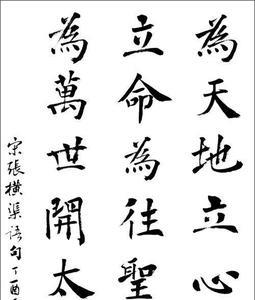 為天地立心
立命為往聖
為萬世開太
宋張橫渠語句丁酉